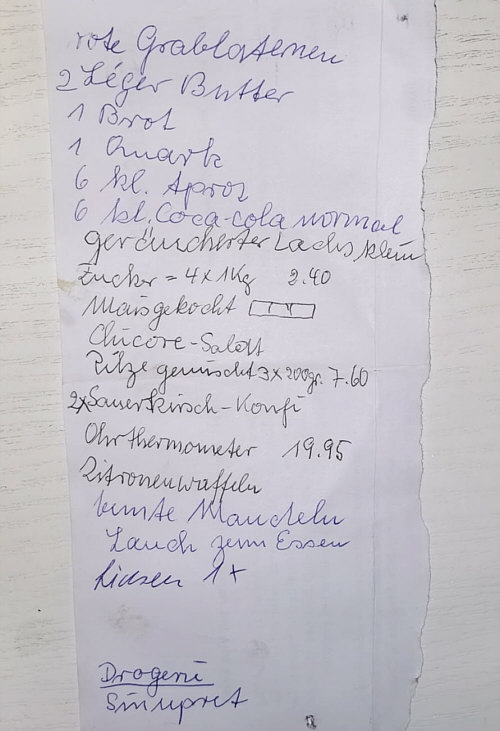 rote Grablaternen
2 Léger Butter
1 Brot
1 Quark
6 kl. Aproz
6 kl. Coca-cola normal
geräucherter Lachs klein
Zucker = 4 x 1Kg 2.40
Mais gekocht
Chicore-Salat
Pilze gemischt 3x200gr. 7.60
2x Sauerkirsch-Konfi
Ohrthermometer 19.95
Zitronenwaffeln
bunte Mandeln
Lauch zum Essen
Linsen 1x
Drogerie
Sinupret